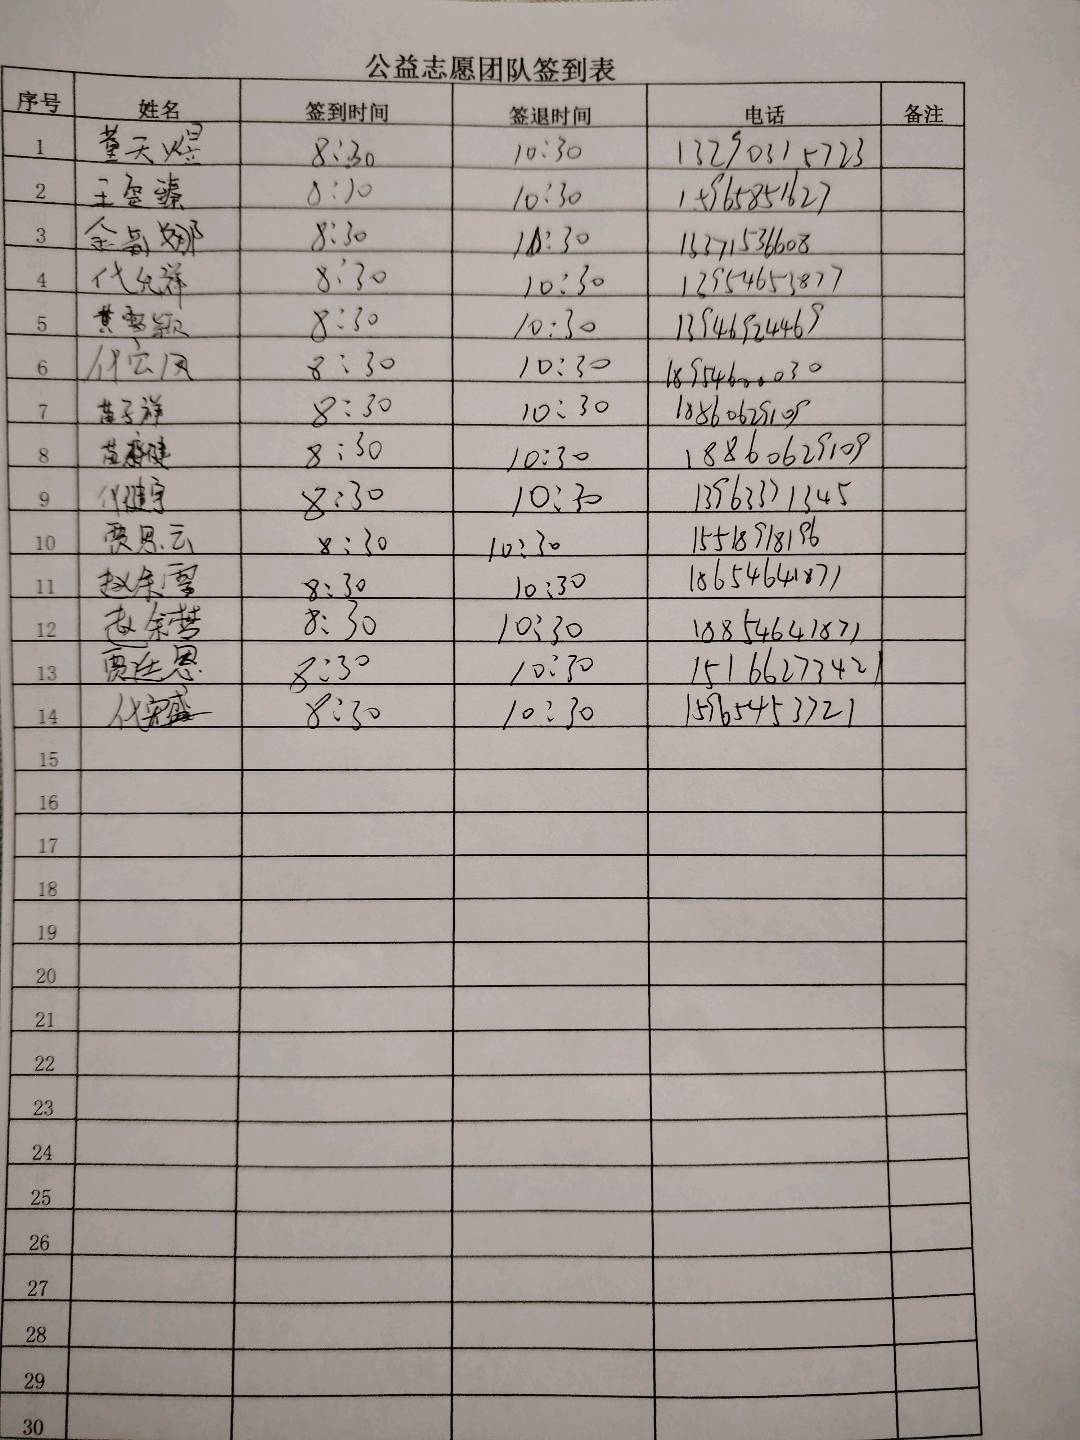 公益志愿团队签到表
序号 姓名 签到时间 签退时间 电话 备注
1 董天煜 8:30 10:30 13290315723
2 王奕臻 8:30 10:30 15965851627
3 8:30 10:30 15371536608
4 代允祥 8:30 10:30 12954653877
5 黄雪颖 8:30 10:30 13946924469
6 代宏风 8:30 10:30 18954600030
7 苗子祥 8:30 10:30 18860629109
8 8:30 10:30 18860629109
9 代健宇 8:30 10:30 13963371345
10 贾恩云 8:30 10:30 15518918196
11 赵余雪 8:30 10:30 18654641871
12 赵余梦 8:30 10:30 18854641871
13 贾廷恩 8:30 10:30 15166273421
14 8:30 10:30 15965453721
15
16
17
18
19
20
21
22
23
24
25
26
27
28
29
30